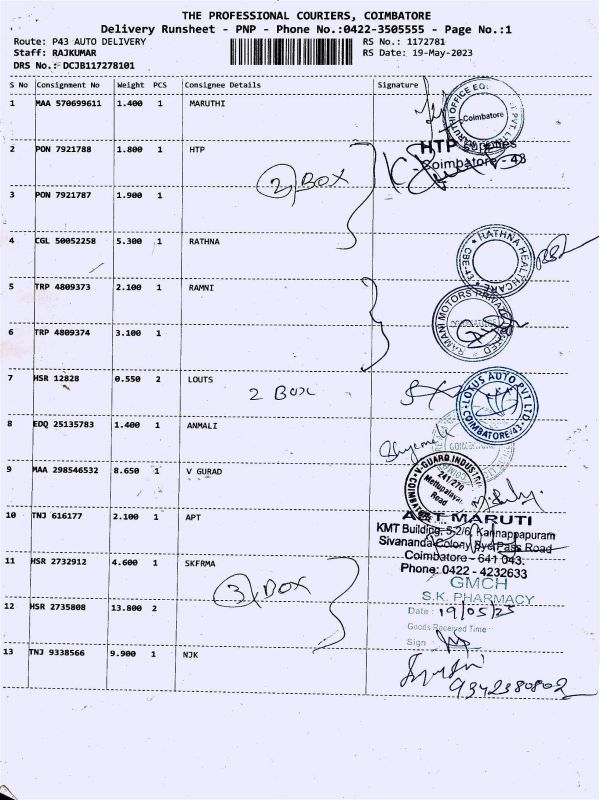 THE PROFESSIONAL COURIERS, COIMBATORE
Delivery Runsheet - PNP - Phone No.:0422-3505555 - Page No.:1
Route: P43 AUTO DELIVERY RS No.: 1172781
Staff: RAJKUMAR RS Date: 19-May-2023
DRS No.: DCJB117278101
S No Consignment No Weight PCS Consignee Details Signature
1 MAA 570699611 1.400 1 MARUTHI
MARUTHI OFFICE EQ PVT. LTD
Coimbatore
2 PON 7921788 1.800 1 HTP
HTP
Coimbatore - 48
2 BOX
3 PON 7921787 1.900 1
4 CGL 50052258 5.300 1 RATHNA
RATHNA HEALTHCARE
5 TRP 4809373 2.100 1 RAMNI
RAMANI MOTORS PRIVATE
6 TRP 4809374 3.100 1
7 HSR 12828 0.550 2 LOUTS
2 BOX
LOTUS AUTO PVT LTD
COIMBATORE-43
8 EDQ 25135783 1.400 1 ANMALI
9 MAA 298546532 8.650 1 V GURAD
GUARD INDUSTRI
241/270
Mettupalayam
Road
10 TNJ 616177 2.100 1 APT
MARUTI
KMT Building, 5-2/6, Kannappapuram
Sivananda Colony Bye Pass Road
Coimbatore - 641 043.
Phone: 0422 - 4232633
11 HSR 2732912 4.600 1 SKFRMA
3 BOX
GMCH
S.K. PHARMACY
12 HSR 2735808 13.800 2
Date : 19/05/23
Goods Received Time :
Sign :
13 TNJ 9338566 9.900 1 NJK
9342380802